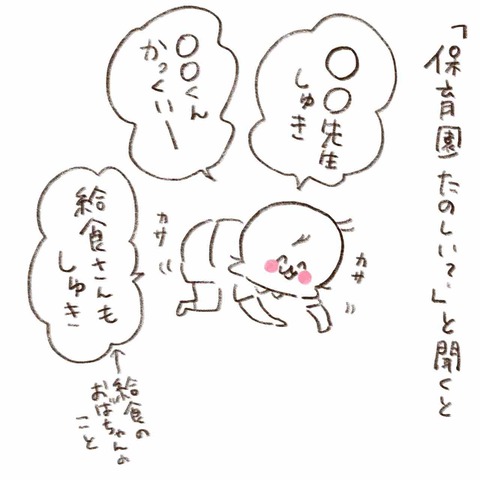 「保育園たのしい？」と聞くと
○○先生
しゅき
○○くん
かっくいー
カサ
カサ
給食さんも
しゅき
←給食の
おばちゃんの
こと